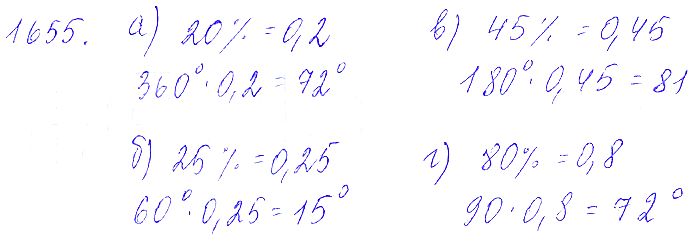 1655. а) 20% = 0,2
360° · 0,2 = 72°
б) 25% = 0,25
60° · 0,25 = 15°
в) 45% = 0,45
180° · 0,45 = 81
г) 80% = 0,8
90 · 0,8 = 72°